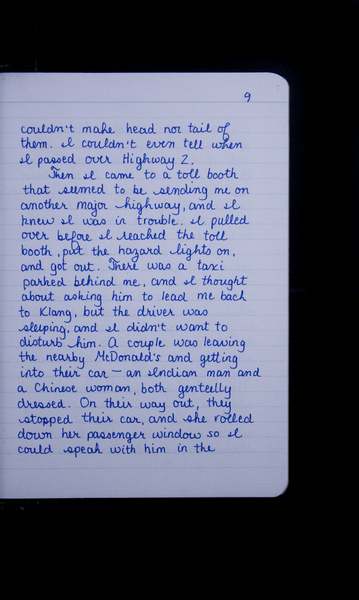 9
couldn't make head nor tail of
them. I couldn't even tell when
I passed over Highway 2.
Then I came to a toll booth
that seemed to be sending me on
another major highway, and I
knew I was in trouble. I pulled
over before I reached the toll
booth, put the hazard lights on,
and got out. There was a taxi
parked behind me, and I thought
about asking him to lead me back
to Klang, but the driver was
sleeping, and I didn't want to
disturb him. A couple was leaving
the nearby McDonald's and getting
into their car — an Indian man and
a Chinese woman, both genteelly
dressed. On their way out, they
stopped their car, and she rolled
down her passenger window so I
could speak with him in the